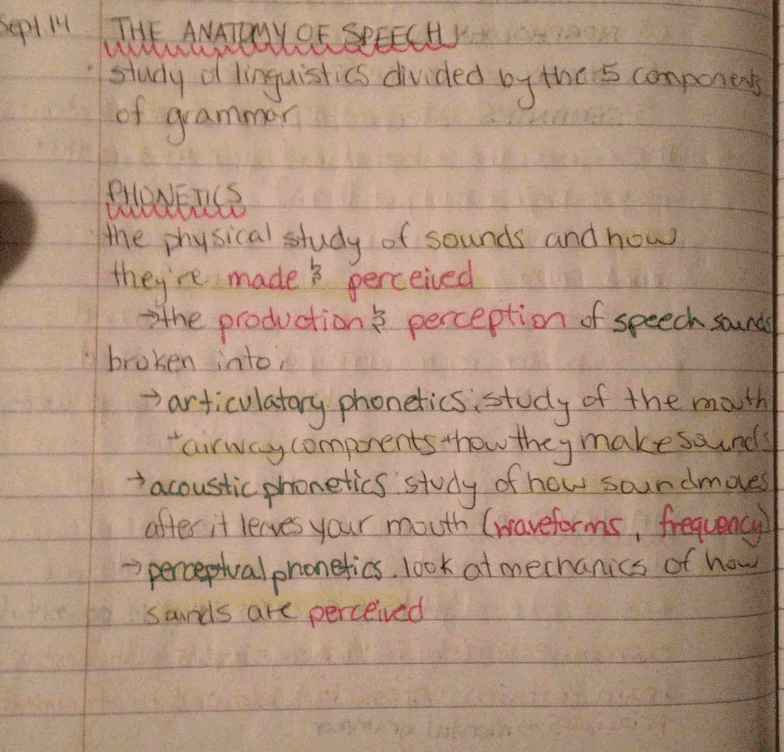 Sept.14
THE ANATOMY OF SPEECH
· study of linguistics divided by the 5 components
of grammar
PHONETICS
the physical study of sounds and how
they're made & perceived
→the production & perception of speech sounds
· broken into:
→articulatory phonetics: study of the mouth
+airway components + how they make sounds
→acoustic phonetics: study of how sound moves
after it leaves your mouth (waveforms, frequency)
→perceptual phonetics: look at mechanics of how
sounds are perceived